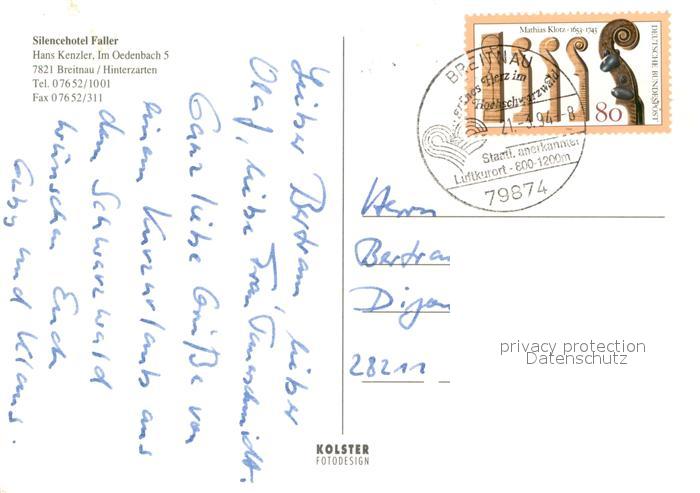 Silencehotel Faller
Hans Kenzler, Im Oedenbach 5
7821 Breitnau / Hinterzarten
Tel. 07652/1001
Fax 07652/311
Lieber Bertram, lieber
Olaf, liebe Frau
Ganz liebe Grüße von
einem Kurzurlaub aus
dem Schwarzwald
wünschen Euch
Gaby und Klaus.
Mathias Klotz · 1653-1743
DEUTSCHE BUNDESPOST
80
BREITNAU
Herz im
Hochschwarzwald
21.-3.94-8
Staatl. anerkannter
Luftkurort - 800-1200m
79874
Herrn
Bertram
28211
privacy protection
Datenschutz
KOLSTER
FOTODESIGN